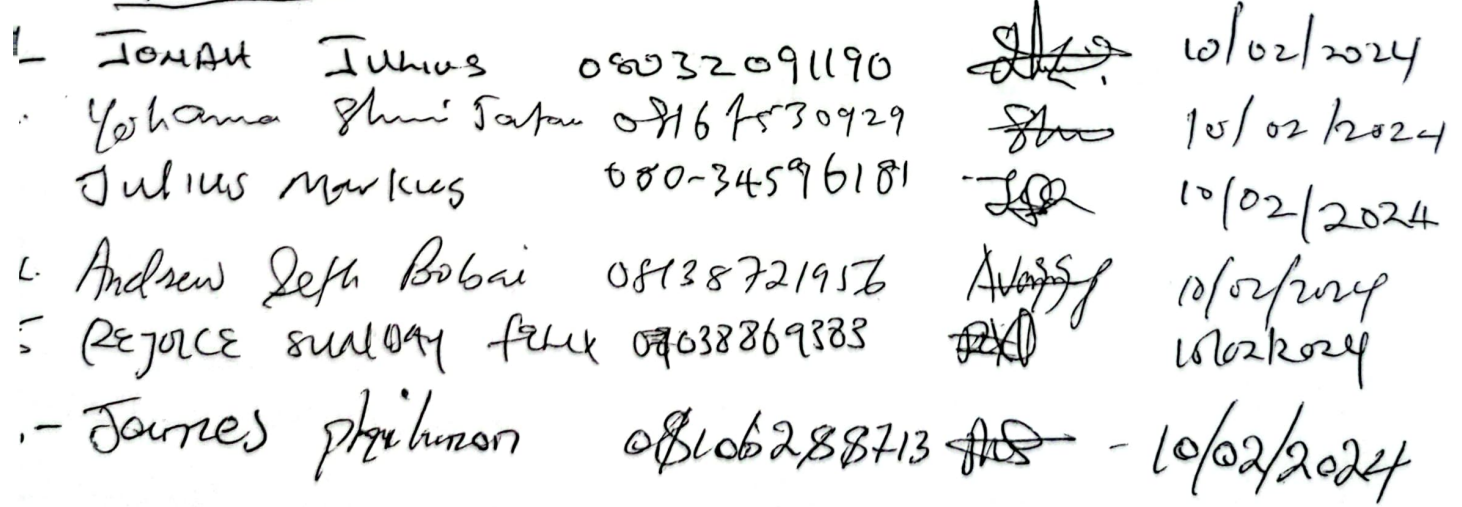 1- JONAH Julius 08032091190 10/02/2024
Yohanna Shuni Jatau 08167530929 10/02/2024
Julius Markus 080-34596181 10/02/2024
Andrew Seth Bobai 08138721956 10/02/2024
5 REJOICE SUNDAY felix 07038869383 10/02/2024
James philimon 08106288713 - 10/02/2024